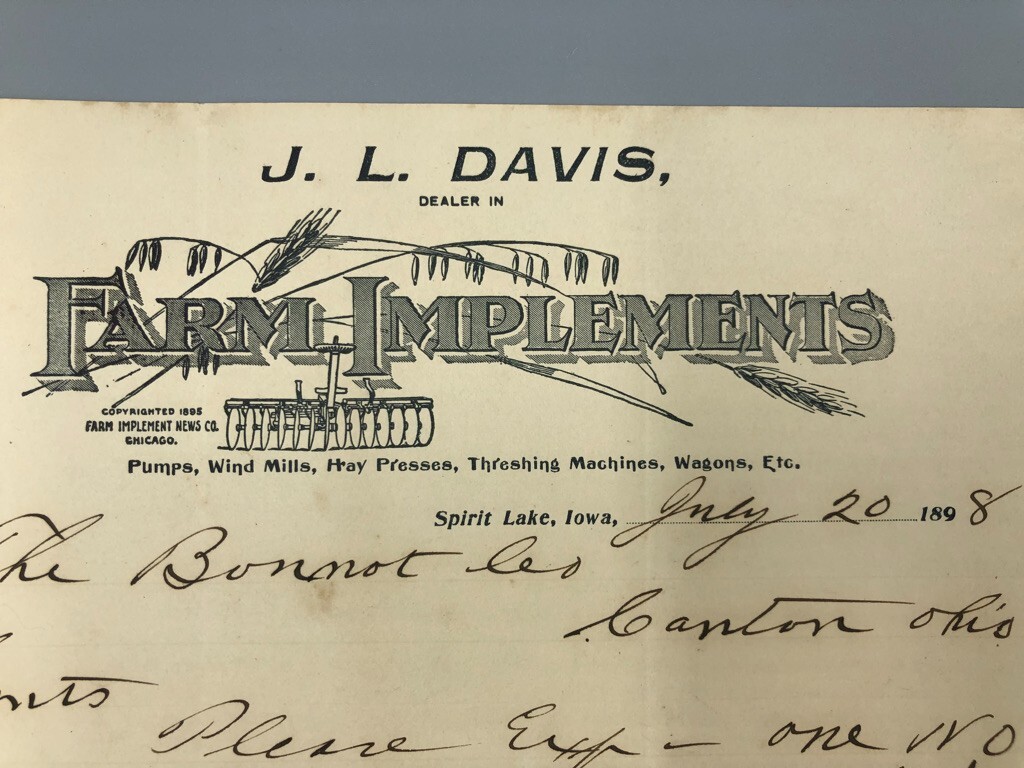 J. L. DAVIS,
DEALER IN
FARM IMPLEMENTS
COPYRIGHTED 1895
FARM IMPLEMENT NEWS CO.
CHICAGO.
Pumps, Wind Mills, Hay Presses, Threshing Machines, Wagons, Etc.
Spirit Lake, Iowa, July 20 1898
The Bonnot Co
Canton Ohio
Please Exp - one No